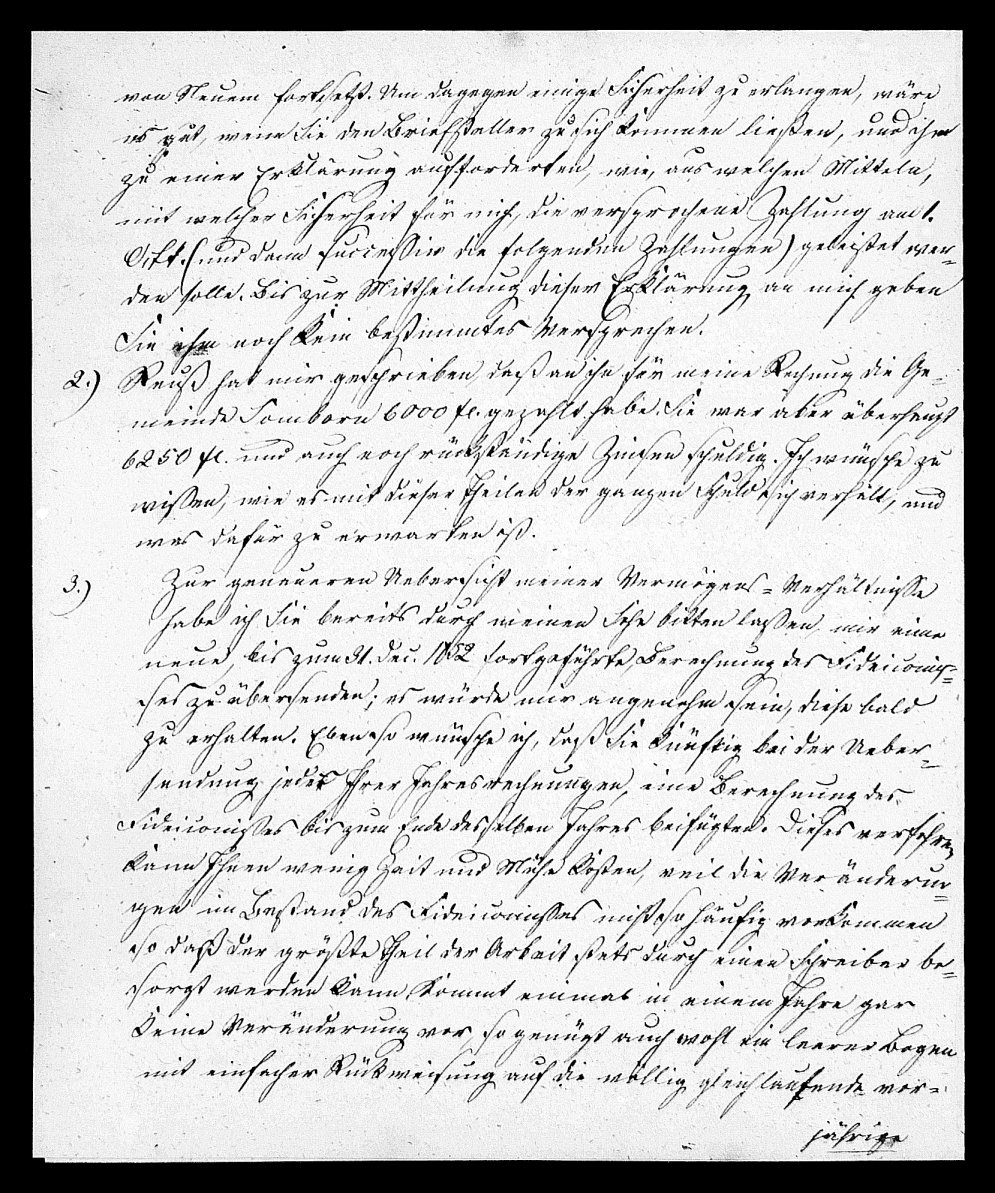 von Neuem fortsetzt. Um dagegen einige Sicherheit zu erlangen, wäre
es gut, wenn Sie den Briefsteller zu sich kommen ließen, und ihn
zu einer Erklärung aufforderten, wie, aus welchen Mitteln,
mit welcher Sicherheit für mich, die versprochene Zahlung am 1.
Ockt. (und dann successiv die folgenden Zahlungen) geleistet wer-
den solle. Bis zur Mittheilung dieser Erklärung an mich geben
Sie ihm noch kein bestimmtes Versprechen.
2.) Reuß hat mir geschrieben, daß an ihn für meine Rechnung die Ge-
meinde Somborn 6000 fl. gezahlt habe. Sie war aber überhaupt
6250 fl. und auch noch rückständige Zinsen schuldig. Ich wünsche zu
wissen, wie es mit dieser Theilen der ganzen Schuld sich verhält, und
was dafür zu erwarten ist.
3.) Zur genaueren Uebersicht meiner Vermögens-Verhältnisse
habe ich Sie bereits durch meinen bitten lassen mir eine
neue, bis zum 31. Dec. 1852 fortgeführte, Berechnung des Fideicomis-
ses zu übersenden; es würde mir angenehm sein, diese bald
zu erhalten. Eben so wünsche ich, daß Sie künftig bei der Ueber-
sendung jeder Ihrer Jahresrechnungen, eine Berechnung des
Fideicomisses bis zum Ende desselben Jahres beifügten. Dieses verfahren
kann Ihnen wenig Zeit und Mühe kosten, weil die Veränderun-
gen im Bestand des Fideicomisses nicht so häufig vorkommen
so daß der größte Theil der Arbeit stets durch einen Schreiber be-
sorgt werden kann. Kommt einmal in einem Jahre gar
keine Veränderung vor, so genügt auch wohl ein leerer Bogen
mit einfacher Rückweisung auf die völlig gleichlaufende vor-
jährige